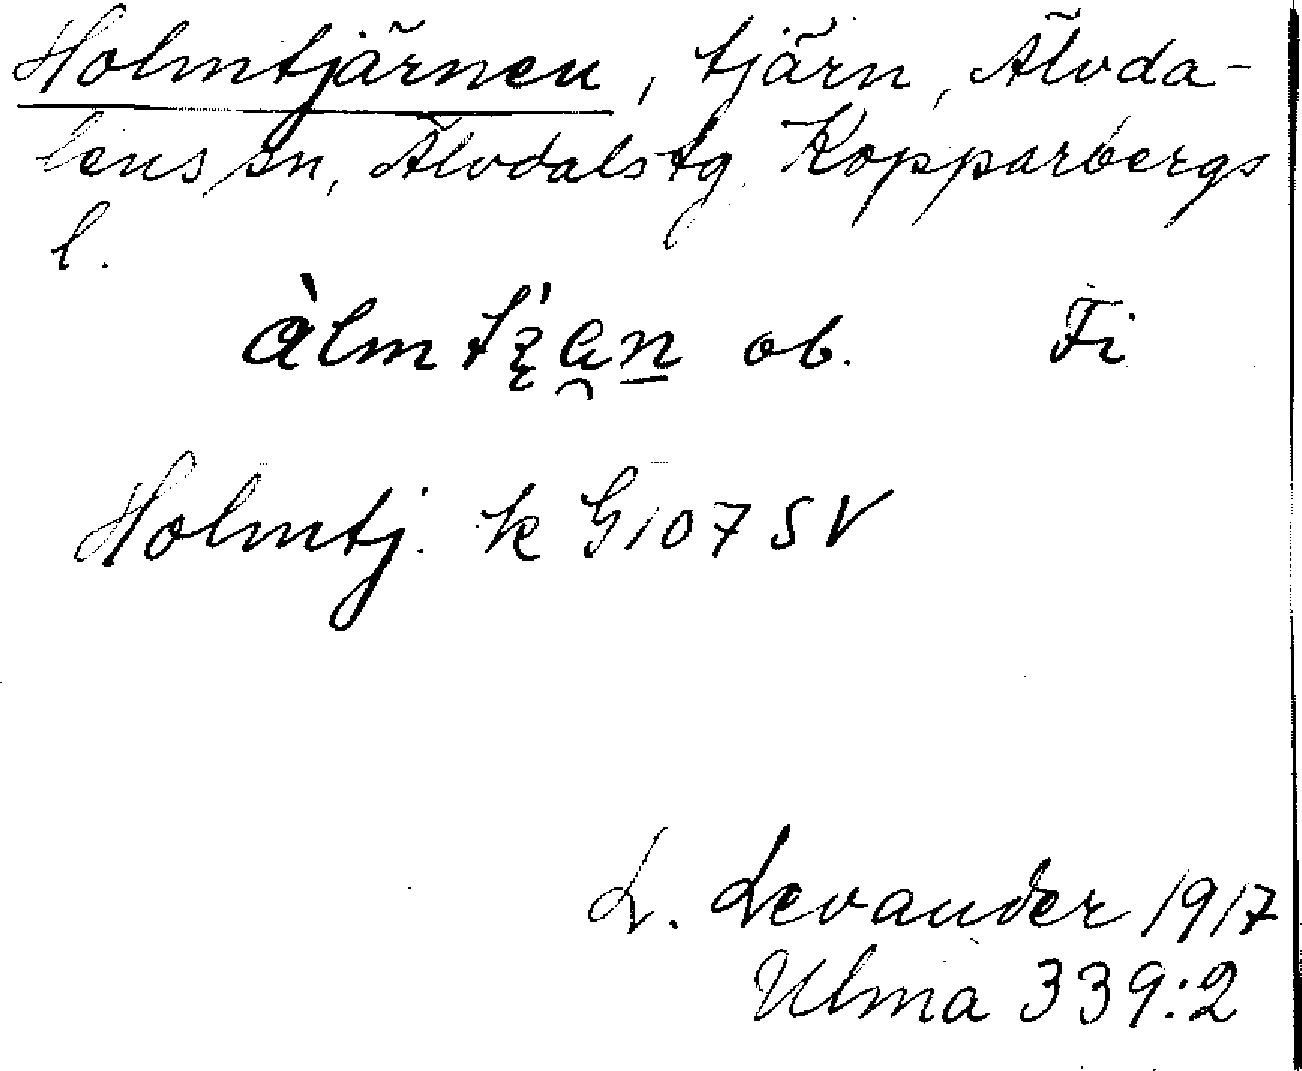 Holmtjärnen, tjärn, Älvda-
lens sn, Älvdals tg. Kopparbergs
l.
ob. Fi
Holmtj. k G107 SV
L. Levander 1917
Ulma 339:2